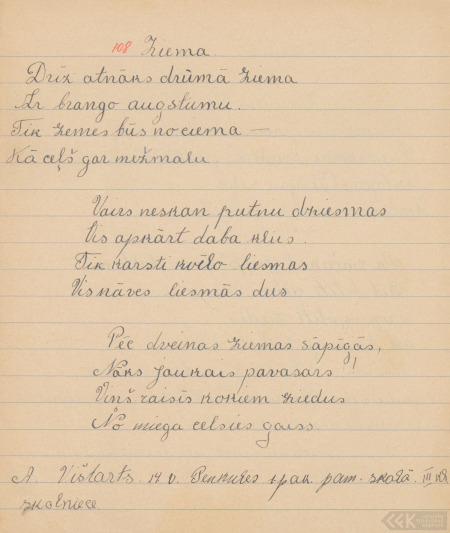 108 Ziema.
Drīz atnāks drūmā ziema
Ar brango augstumu.
Tik zemes būs no ciema —
Kā ceļš gar mežmalu
Vairs neskan putnu dziesmas
Vis apkārt daba klus.
Tik karsti kvēlo liesmas
Vis nāves liesmās dus
Pēc dveinas ziemas sāpīgās,
Nāks jaukais pavasars!
Viņš raisīs kokiem ziedus
No miega celsies gaiss.
A. Vištarts. 14 v. Penkules pam. skolā. III kl.
skolniece.